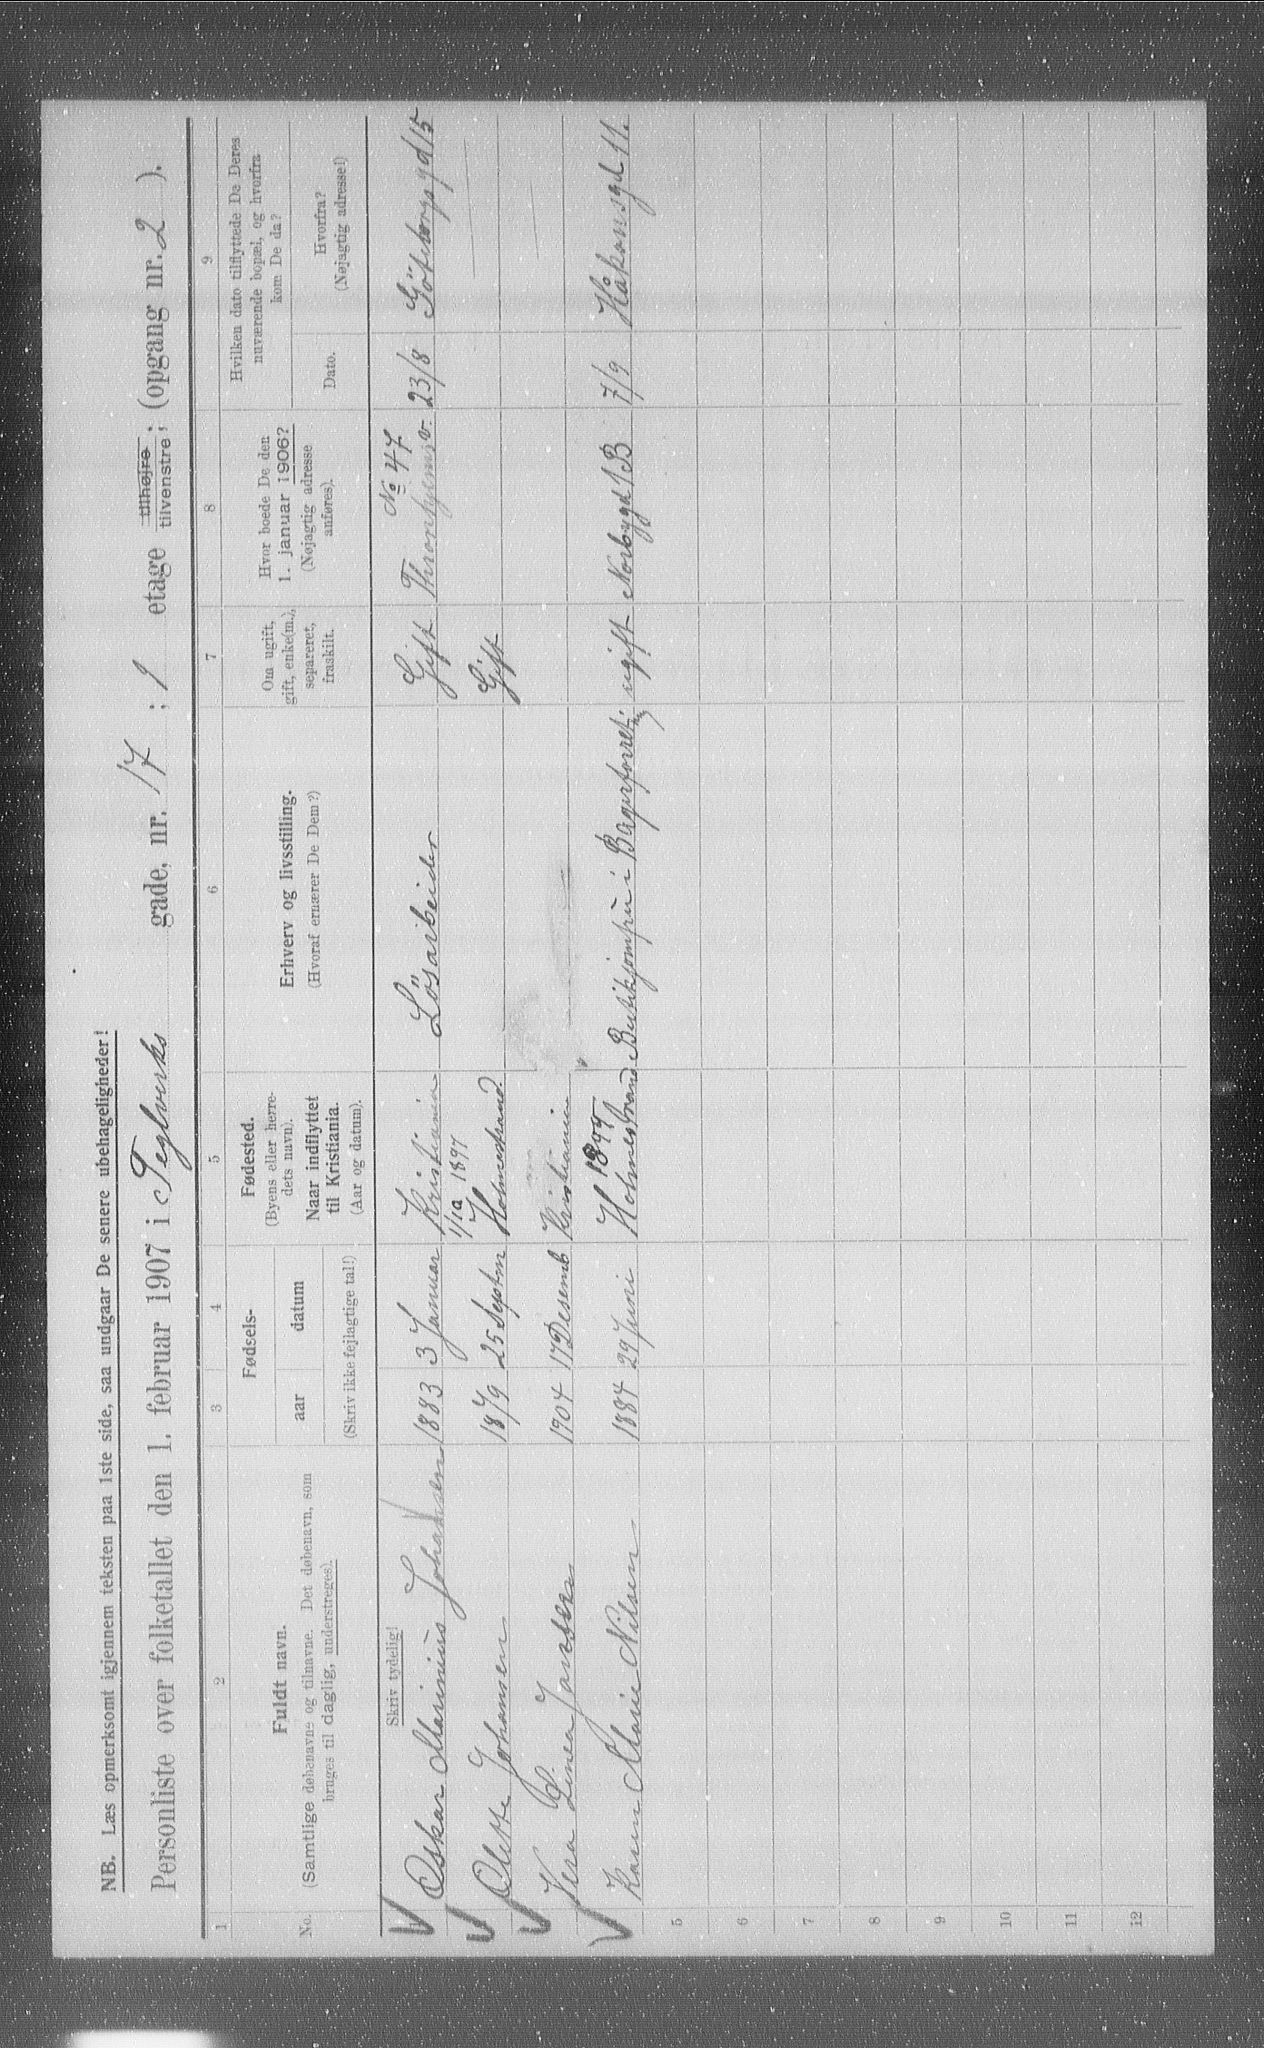 NB. Læs opmerksomt igjennem teksten paa 1ste side, saa undgaar De senere ubehageligheder!
Personliste over folketallet den 1. februar 1907 i Teglverks gade, nr. 17 ; 1 etage tilhøjre tilvenstre ; (opgang nr. 2 ).
1 2 3 4 5 6 7 8 9
No.
Fuldt navn.
(Samtlige døbenavne og tilnavne. Det døbenavn, som
bruges til daglig, understreges).
Fødsels-
aar datum
(Skriv ikke fejlagtige tal!)
Fødested.
(Byens eller herre-
dets navn).
Naar indflyttet
til Kristiania.
(Aar og datum).
Erhverv og livsstilling.
(Hvoraf ernærer De Dem?)
Om ugift,
gift, enke(m.),
separeret,
fraskilt.
Hvor boede De den
1. januar 1906?
(Nøjagtig adresse
anføres).
Hvilken dato tilflyttede De Deres
nuværende bopæl, og hvorfra
kom De da?
Dato.
Hvorfra?
(Nøjagtig adresse!)
Skriv tydelig!
No 47
Oskar Marinius Johansen 1883 3 Januar Kristiania Lösarbeider Gift Thronhjemsv. 23/8 Göteborgsgd 15
1/10 1897
Olette Johansen 1879 25 Septem Holmestrand. Gift
Vera Linea Janssen 1904 17 Desemb Kristiania
1899
Karen Marie Nilsen 1884 29 Juni Holmestrand Butikjomfru i Bagerforret. ugift Norbygd 1B 7/9 Håkonsgd 11.
5
6
7
8
9
10
11
12